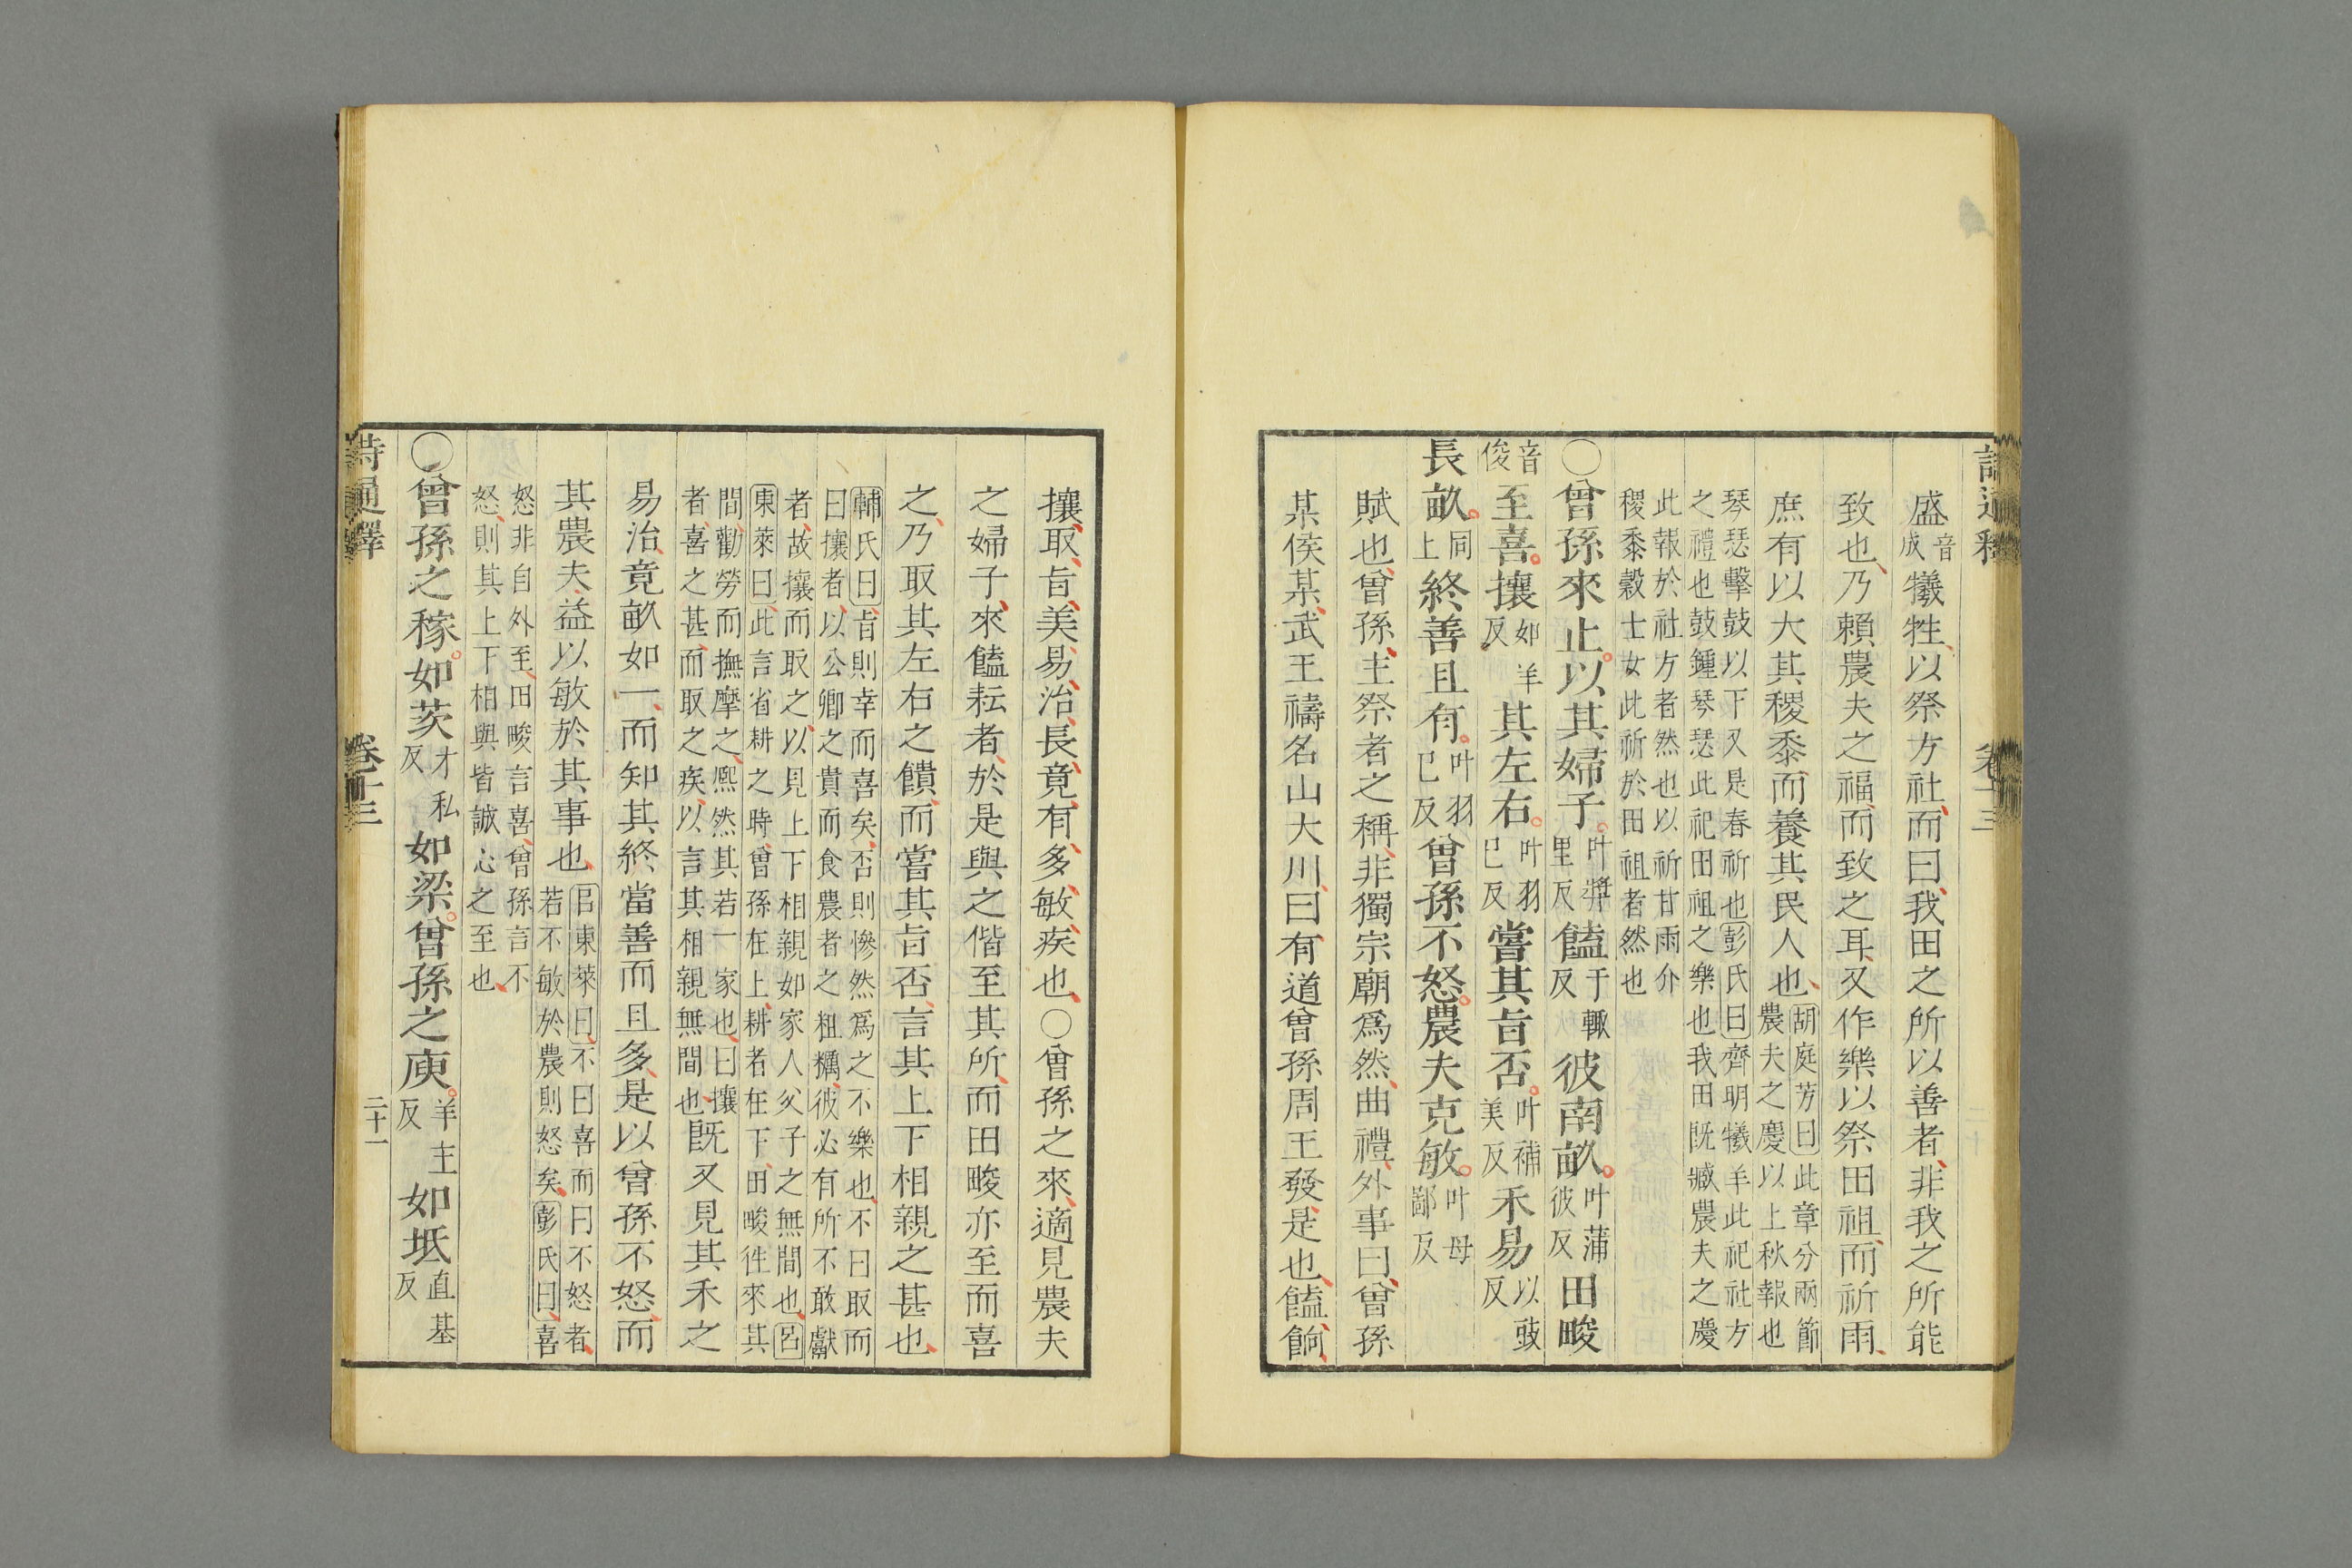 詩通釋 卷十三
盛音成犧牲以祭方社而曰我田之所以善者非我之所能
致也乃賴農夫之福而致之耳又作樂以祭田祖而祈雨
庶有以大其稷黍而養其民人也胡庭芳曰此章分兩節農夫之慶以上秋報也
琴瑟擊鼓以下又是春祈也彭氏曰齊明犧羊此祀社方
之禮也鼓鍾琴瑟此祀田祖之樂也我田既臧農夫之慶
此報於社方者然也以祈甘雨介
稷黍穀士女此祈於田祖者然也
○曾孫來止以其婦子叶奬里反饁于輒反彼南畝叶蒲彼反田畯
音俊至喜攘如羊反其左右叶羽已反嘗其旨否叶補美反禾易以豉反
長畝同上終善且有叶羽已反曾孫不怒農夫克敏叶母鄙反
賦也曾孫主祭者之稱非獨宗廟爲然曲禮外事曰曾孫
某侯某武王禱名山大川曰有道曾孫周王發是也饁餉
攘取旨美易治長竟有多敏疾也○曾孫之來適見農夫
之婦子來饁耘者於是與之偕至其所而田畯亦至而喜
之乃取其左右之饋而嘗其旨否言其上下相親之甚也
輔氏曰旨則幸而喜矣否則慘然爲之不樂也不曰取而
曰攘者以公卿之貴而食農者之粗糲彼必有所不敢獻
者故攘而取之以見上下相親如家人父子之無間也呂
東萊曰此言省耕之時曾孫在上耕者在下田畯徃來其
間勸勞而撫摩之熈然其若一家也曰攘
者喜之甚而取之疾以言其相親無間也既又見其禾之
易治竟畝如一而知其終當善而且多是以曾孫不怒而
其農夫益以敏於其事也呂東萊曰不曰喜而曰不怒者若不敏於農則怒矣彭氏曰喜
怒非自外至田畯言喜曾孫言不
怒則其上下相與皆誠心之至也
○曾孫之稼如茨才私反如梁曾孫之庾羊主反如坻直基反
詩通釋 卷十三 二十一